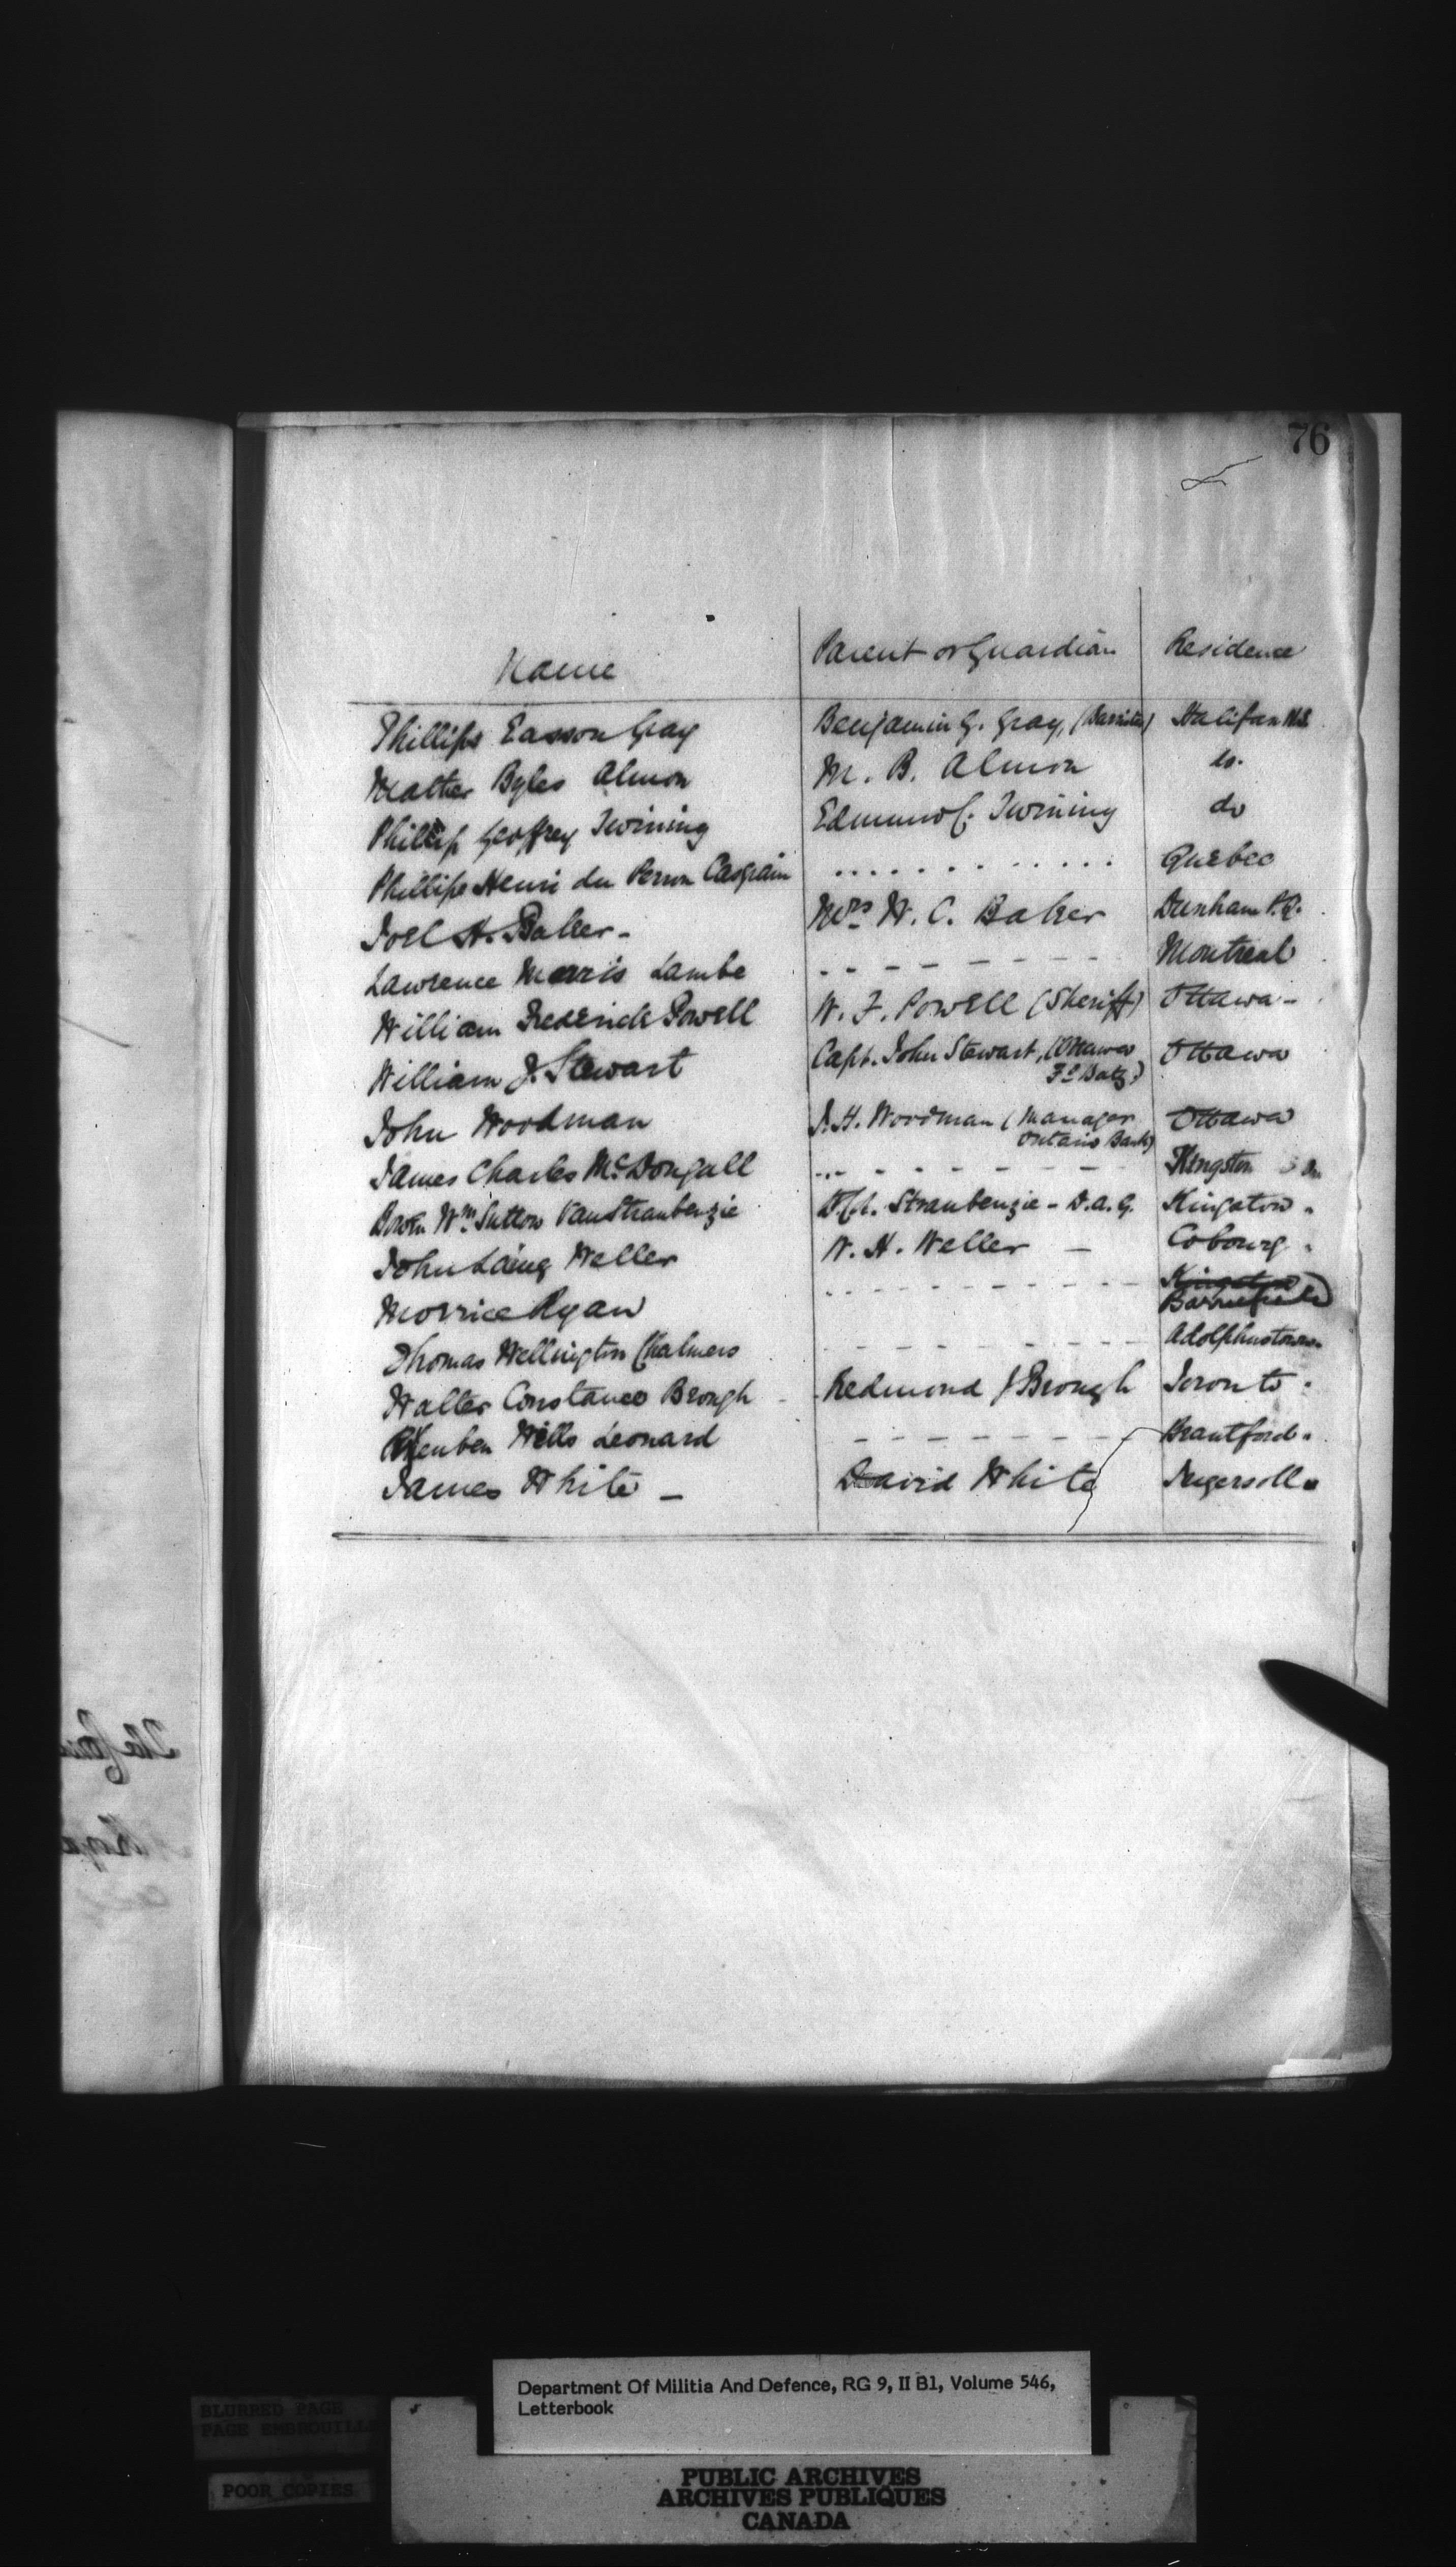 76
Name Parent or Guardian Residence
Phillips Easson Gray Benjamin G. Gray, (Barrister) Halifax N.S
Mather Byles Almon M. B. Almon do.
Phillip Geoffrey Twining Edmund C. Twining do
Phillipe Henri du Perron Casgrain . . . . . . . . . . . . Quebec
Joel H. Baker - Mrs W. C. Baker Dunham P.Q.
Lawrence Morris Lambe - - - - - - - - - Montreal
William Frederick Powell W. F. Powell (Sheriff) Ottawa -
William J. Stewart Capt. John Stewart, (Ottawa Ottawa
Fd Baty)
John Woodman J. H. Woodman (Manager Ottawa
Ontario Bank)
James Charles McDougall - - - - - - - - - Kingston
Bowen Wm Sutton VanStraubenzie Straubenzie - D.A.G. Kingston.
John Laing Weller W. H. Weller - Cobourg.
Morrice Ryan - - - - - - - - - - - Kingston
Barriefield
Thomas Wellington Chalmers - - - - - - - - Adolphustown.
Walter Constance Brough - Redmond J Brough Toronto.
Reuben Wells Leonard - - - - - - - - Brantford.
James White - David White Ingersoll.
Department Of Militia And Defence, RG 9, II B1, Volume 546,
Letterbook
BLURRED PAGE
PAGE EMBROUILL
POOR COPIES
PUBLIC ARCHIVES
ARCHIVES PUBLIQUES
CANADA